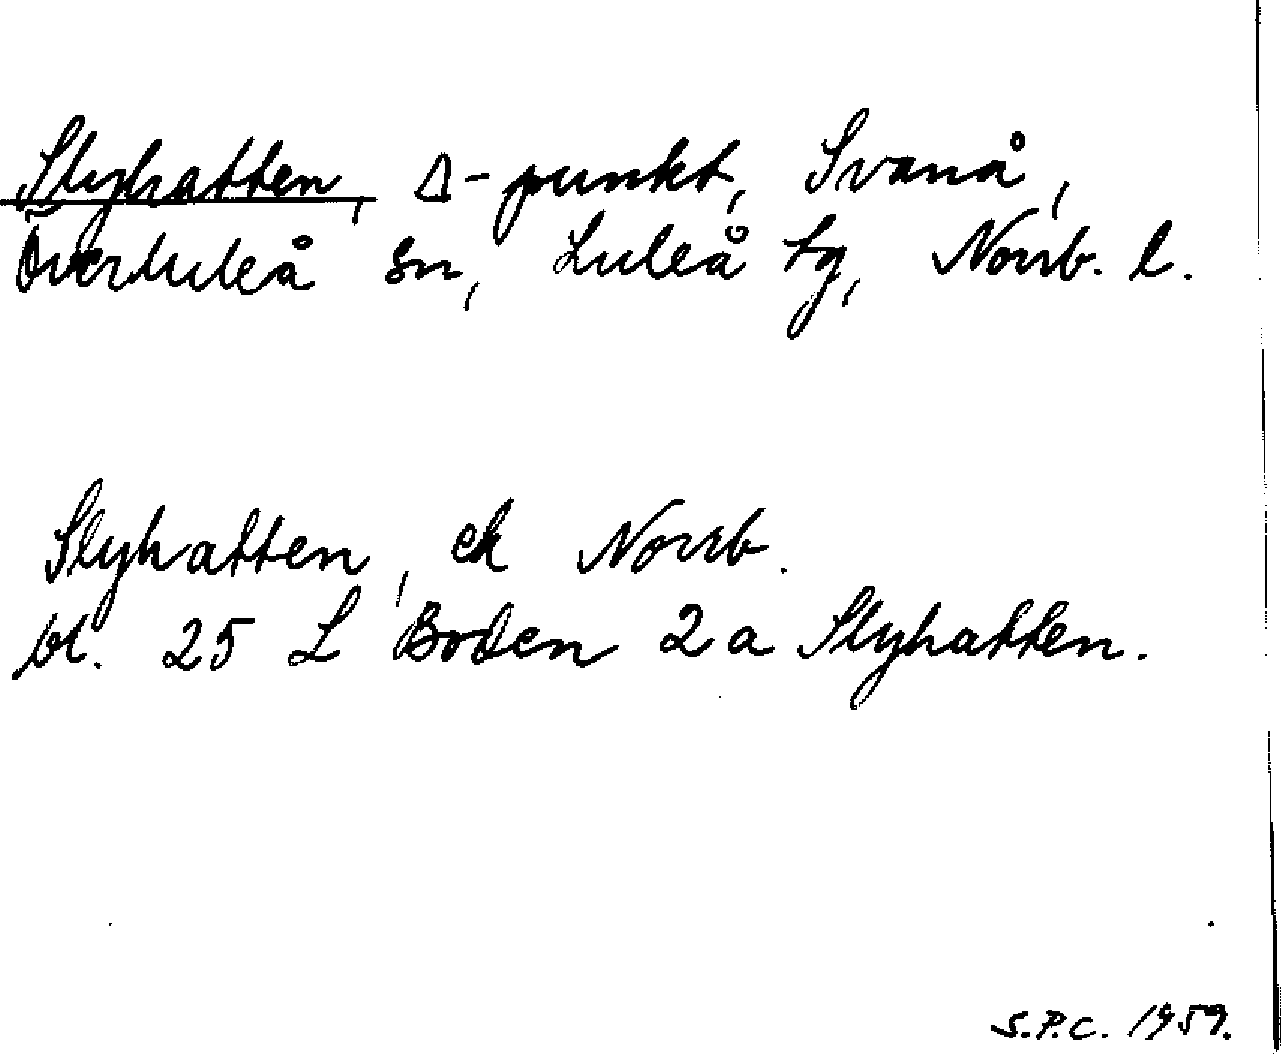 Slyhatten, Δ-punkt, Svanå,
Överluleå sn, Luleå tg, Norrb. l.
Slyhatten, ek Norrb.
bl. 25 L Boden 2a Slyhatten.
S.P.C. 1959.